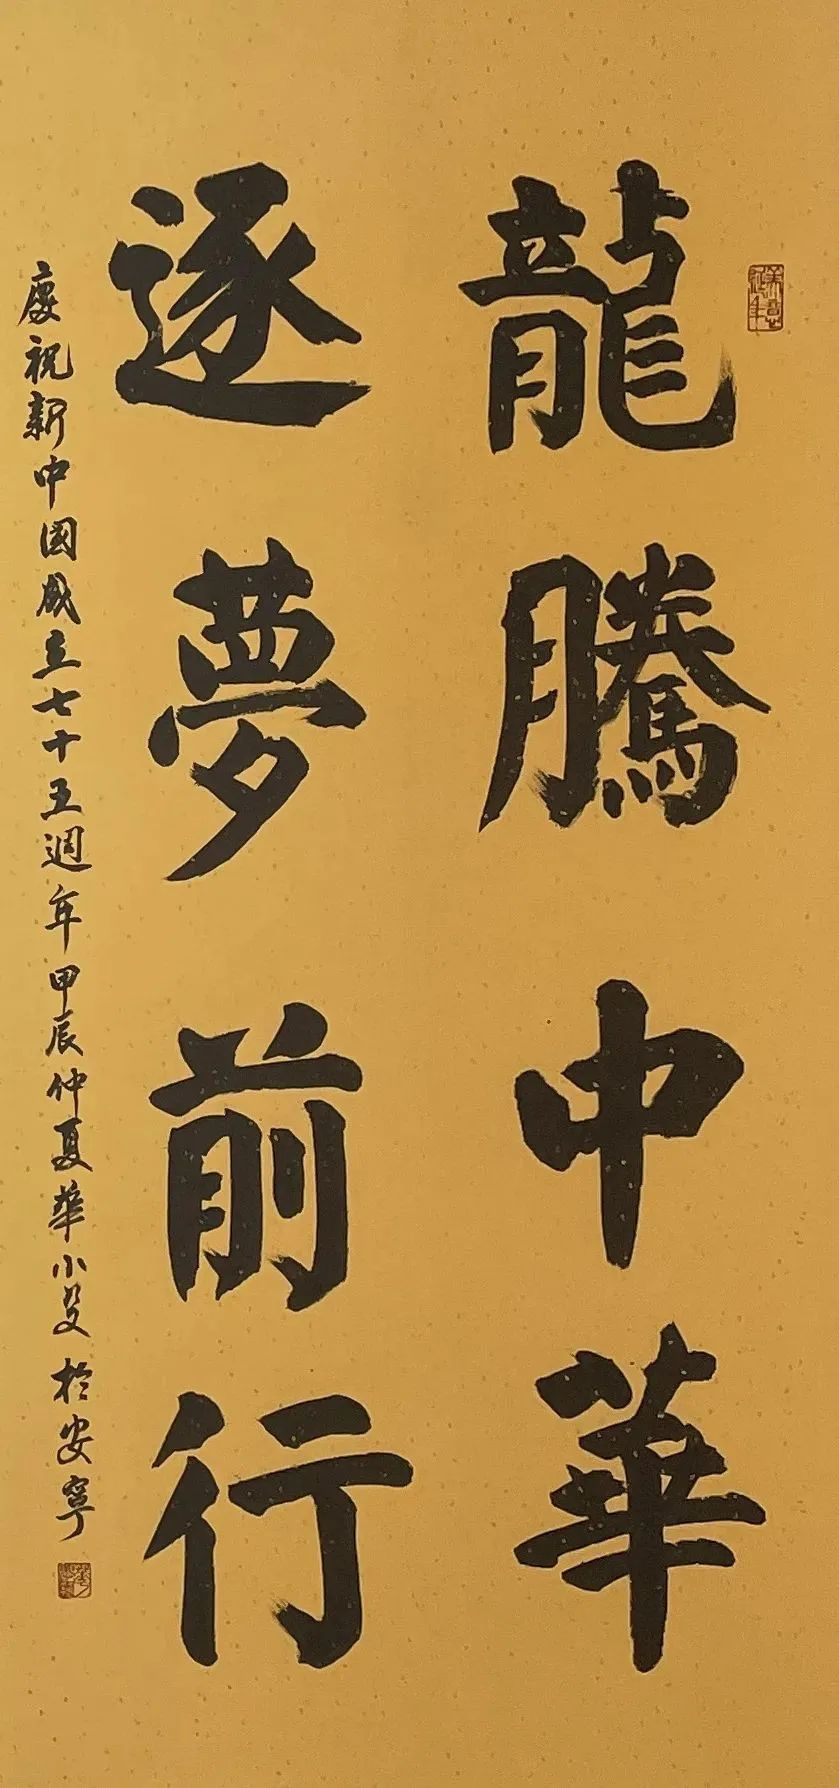 龍騰中華
逐夢前行
慶祝新中国成立七十五週年甲辰仲夏華小受於安寧